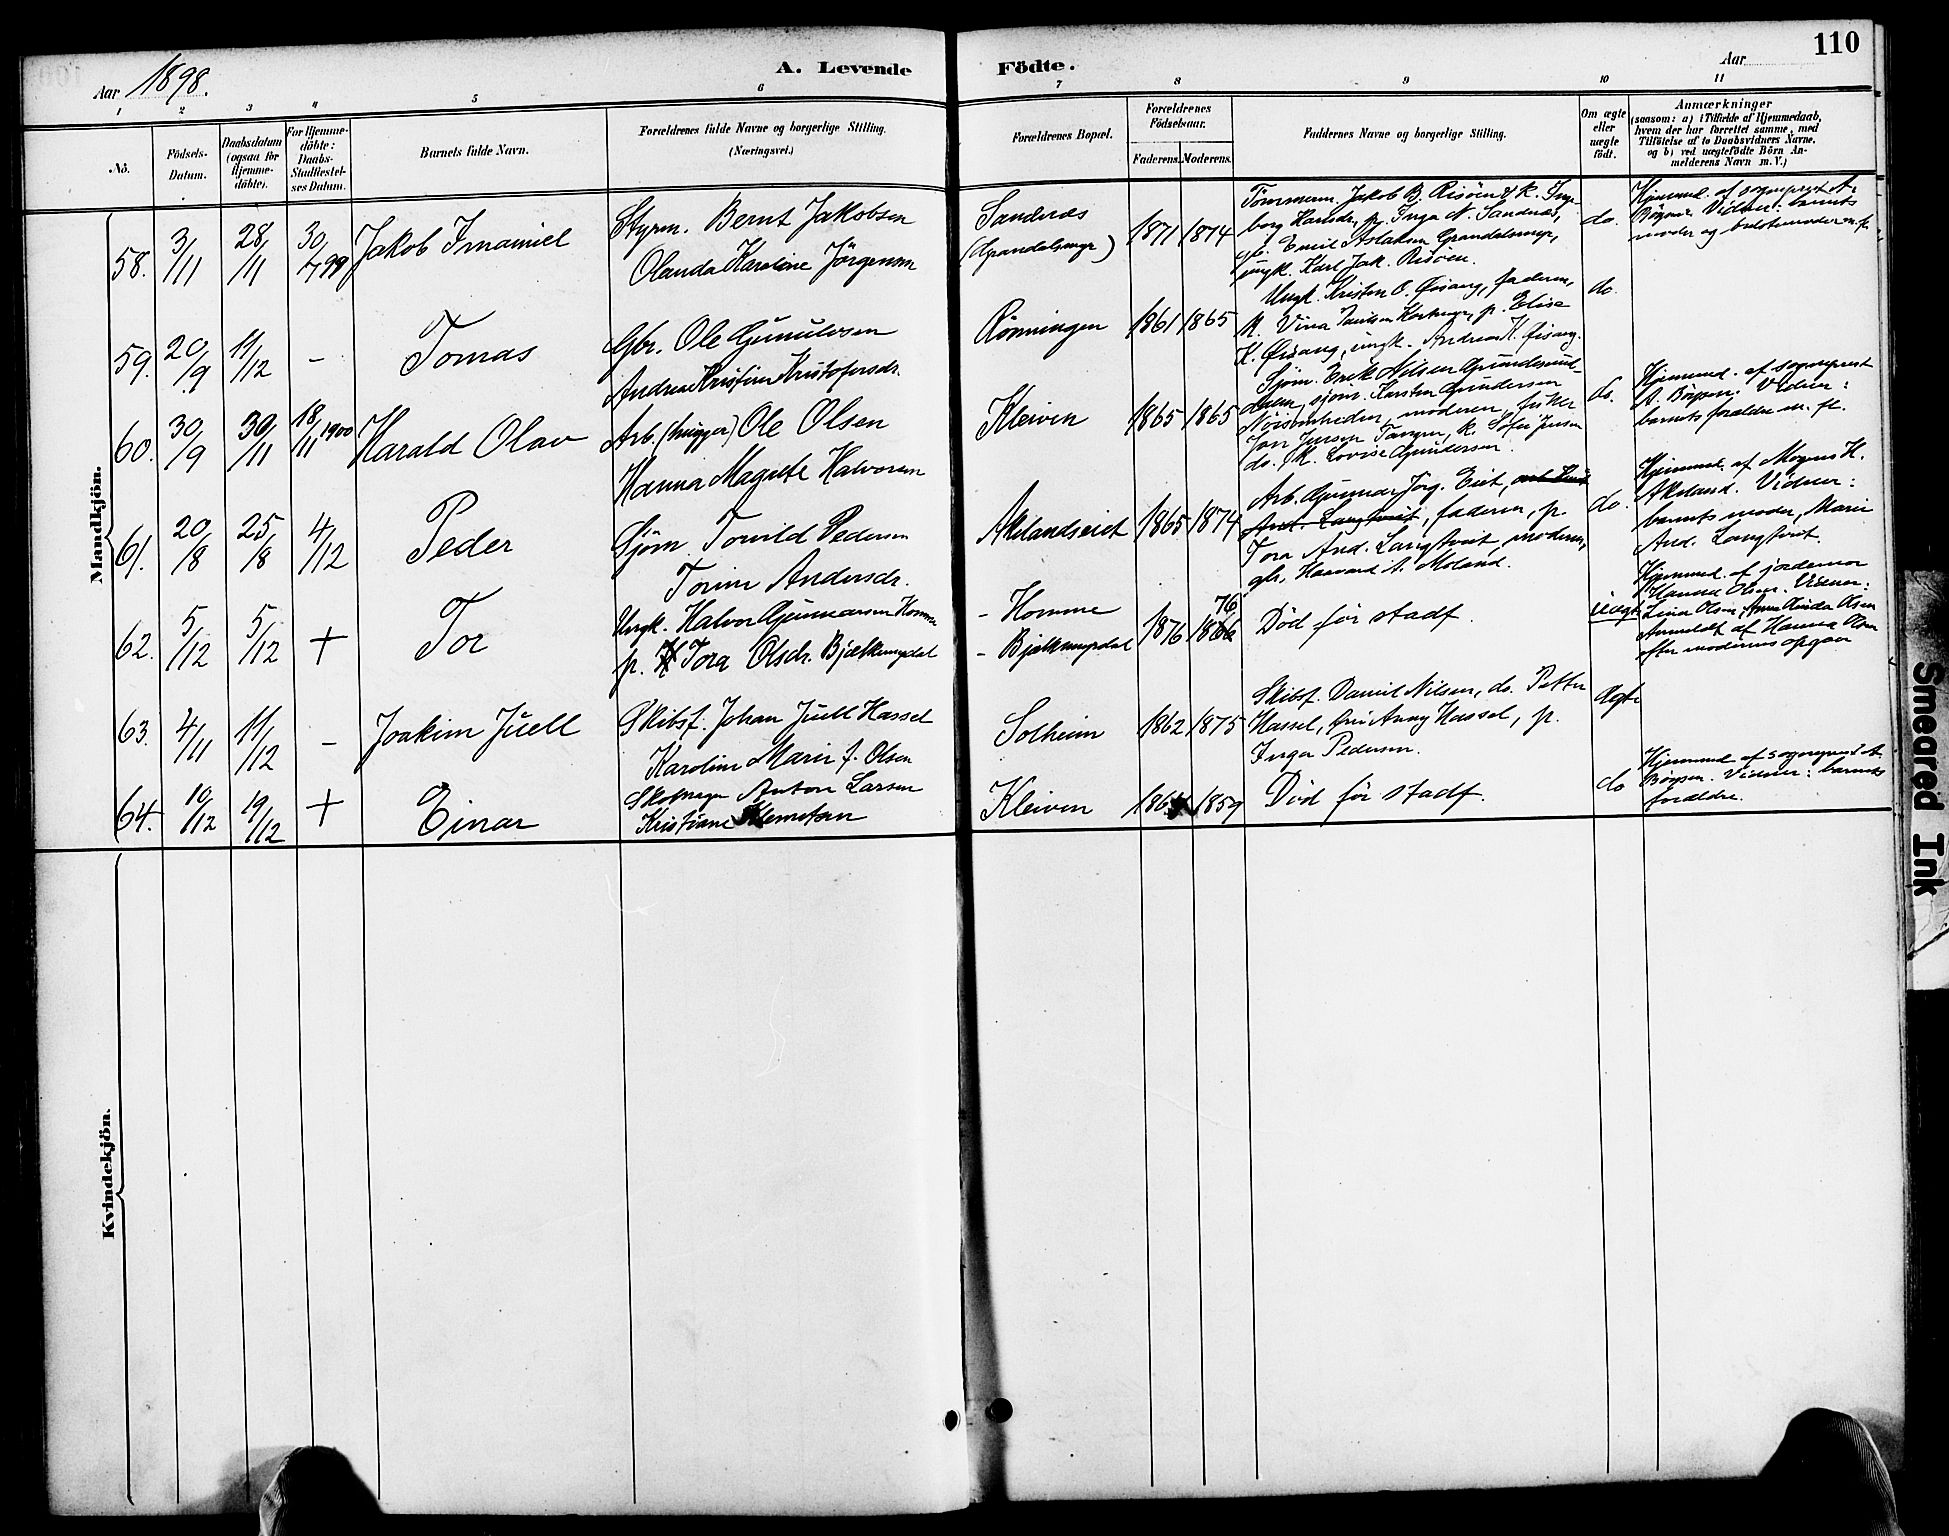 110
Aar 1898.
A. Levende Födte.
Aar
1 2 3 4 5 6 7 8 9 10 11
No.
Födsels-Datum.
Daabsdatum (ogsaa for Hjemme-döbte).
For Hjemme-döbte: Daabs-Stadfæstel-ses Datum.
Barnets fulde Navn.
Forældrenes fulde Navne og borgerlige Stilling. (Næringsvei.)
Forældrenes Bopæl.
Forældrenes Födselsaar.
Faderens. Moderens.
Faddernes Navne og borgerlige Stilling.
Om ægte eller uægte födt.
Anmærkninger
(saasom: a) i Tilfælde af Hjemmedaab, hvem der har forrettet samme, med Tilföielse af to Daabsvidners Navne, og b) ved uægtefödte Börn An-melderens Navn m. V.)
Mandkjön.
58. 3/11 28/11 30/4 99 Jakob Imanuel
Styrm. Bernt Jakobsen
Olanda Karoline Jörgensen
Sandnæs
1871 1874
Tömmerm. Jakob B. Risöen & k. Inge-
borg Hansdr., p. Inga N. Sandnæs,
Emil Aslaksen
ungk. Karl Jak. Risöen.
do.
Hjemmed. af sogneprest A.
Börgsen. Vidner: barnets
moder og bedstemoder m. f.
59. 20/9 11/12 – Tomas
Gbr. Ole Gunulvsen
Andrea Kristine Kristofersdr.
Rönningen
1861 1865
Ungk. Kristen O. Øisang, faderen,
K. Øisang, ungk. Andreas K. Øisang.
do.
60. 30/9 30/11 18/11 1900 Harald Olav
Arb. (hugger) Ole Olsen
Hanna Magrete Halvorsen
Kleiven
1865 1865
Sjöm. Erik Nilsen
sjöm. Karsten Gundersen
moderen,
Jensen Tangen, k. Sofie Jensen
do., k. Lovise Gundersen.
do.
Hjemmed. af sogneprest
A. Börgsen. Vidner:
barnets forældre m. fl.
61. 20/8 25/8 4/12 Peder
Sjöm. Torvild Pedersen
Torine Andersdr.
Akelandseiet
1865 1874
Arb. Gunnar Jörg. Eiet,
And. Langtveit, faderen, p.
Tora And. Langtveit, moderen,
gbr. Haavard A. Moland.
do.
Hjemmed. af Mogens H.
Akeland. Vidner:
barnets moder, Marie
And. Langtveit.
62. 5/12 5/12 + Tor
Ungk. Halvor Gunnarsen Homme
p. Tora Olsdr. Bjelkemyrdal
- Homme
- Bjelkemyrdal
1876 1866 76
Död för stadf.
Uægte
Hjemmed. af jordemor
Hanna Olsen. Vidner:
Lina Olsen, Anne Olsen
Anmeldt af Hanna Olsen
efter moderens opgav
63. 4/11 11/12 – Joakim Juell
Skibsf. Johan Juell Hassel
Karoline Marie f. Olsen
Solheim
1862 1875
Skibsf. Daniel Nilsen, do. Petter
Hassel, fru Anny Hassel, p.
Inga Pedersen.
Ægte
64. 10/12 19/12 + Einar
Skomager Anton Larsen
Kristiane Klemetsen
Kleiven
1859
Död för stadf.
do
Hjemmed. af sogneprest A.
Börgsen. Vidner: barnets
forældre.
Kvindekjön.
Smeared Ink